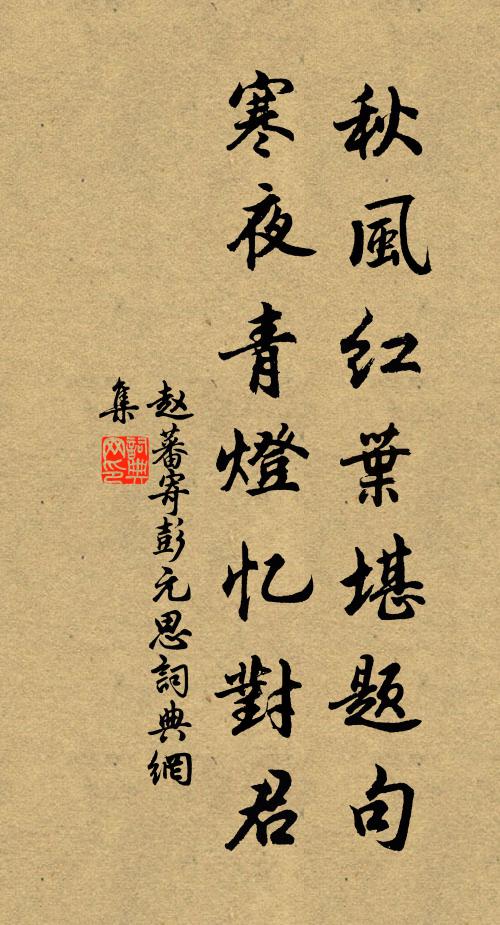 秋風红葉堪题句
寒夜青燈忆對君
赵蕃寄彭元思詞典網
集
詞典
网印